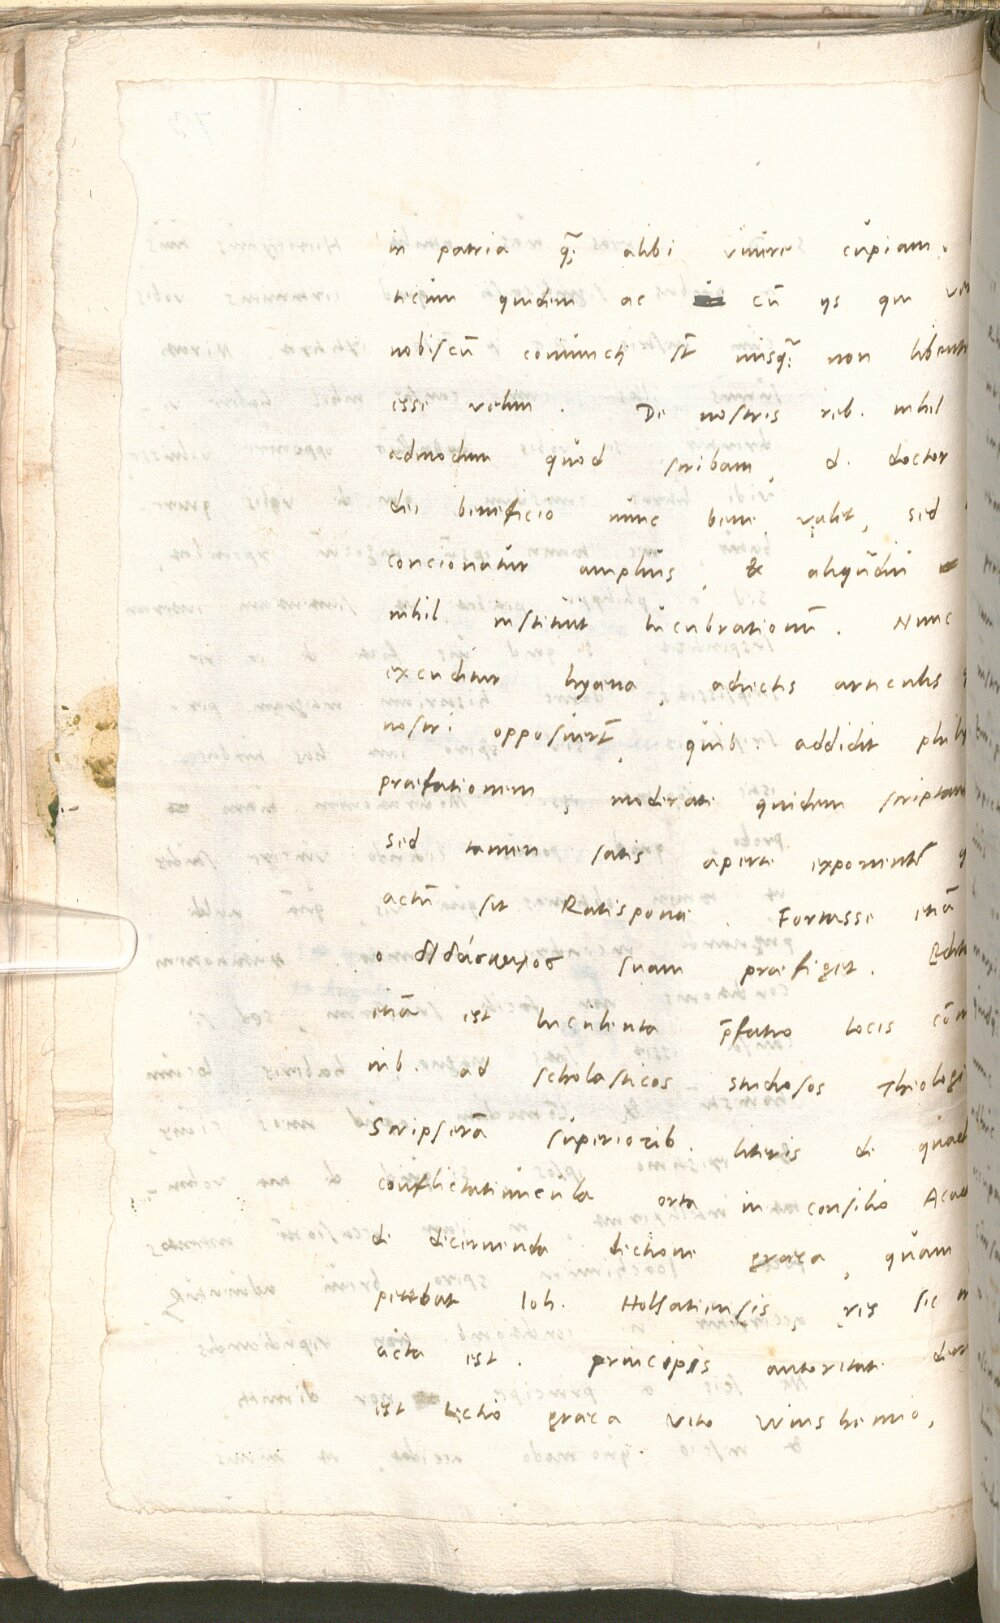 in patria q̃; alibi viuere cupiam,
tecum quidem ac cũ ijs qui
nobiscũ coniuncti sũt nusq̃; non libent
esse velim. De nostris reb. nihil
admodum quod scribam, d. doctor
dei beneficio nunc bene valet, sed
concionatur amplius, & aliqũdiu
nihil instituit lucubrationũ. Nunc
excuditur hyæna, adiectis articulis q
nostri opposuerũt, quib. addidit phili
præfationem, moderate quidem scriptam
sed tamen satis aperte exponentẽ q
actũ sit Ratisponæ. Fortasse etiã
ο διδάσκαλος suam præfiget. Edita
etiã est luculenta p̃fatio locis cõm
nib. ad scholasticos studiosos Theologi
Scripserã superiorib. literis de quad
conflictatiuncula orta in consilio Acad
de decernenda lectione græca, quam
petebat Ioh. Holsatiensis, res sic
acta est. principis autoritate
est lectio græca Vito Winshemio,